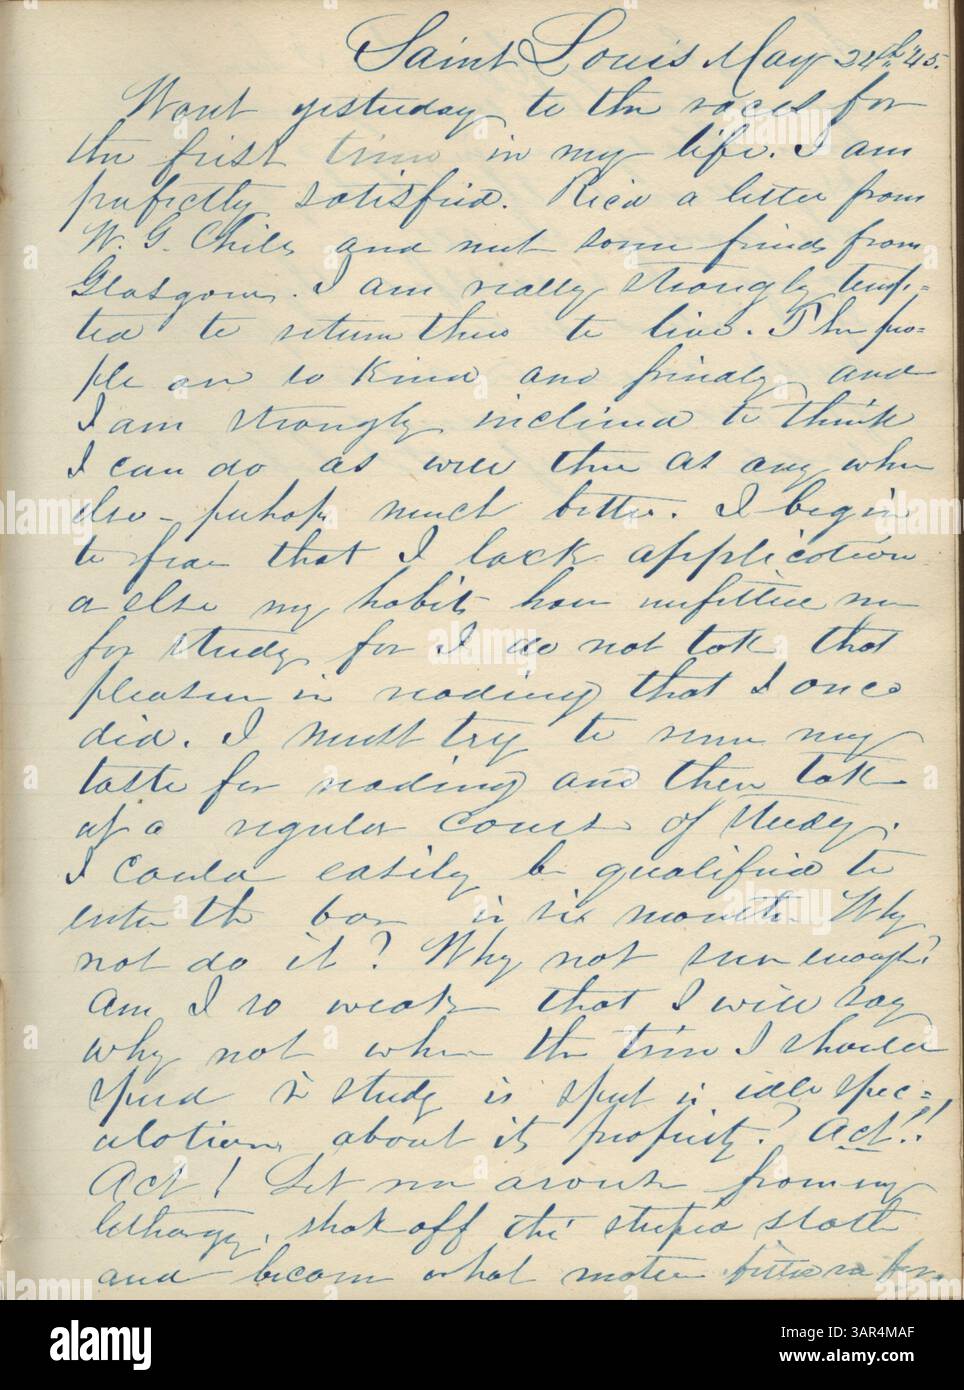 Saint Louis May 24th '45.
Went yesterday to the races for
the first time in my life. I am
perfectly satisfied. Recd a letter from
W. G. Childs and met some friends from
Glasgow. I am really strongly temp=
ted to return there to live. The peo=
ple are so kind and friendly and
I am strongly inclined to think
I can do as well there as any where
else - perhaps much better. I begin
to fear that I lack application
or else my habits have unfitted me
for study for I do not take that
pleasure in reading that I once
did. I must try to renew my
taste for reading and then take
up a regular course of study.
I could easily be qualified to
enter the bar in six months. Why
not do it? Why not sure enough?
Am I so weak that I will say
why not when the time I should
spend in study is spent in idle spec=
ulations about its propriety? Act!!
Act! Let me arouse from my
lethargy, shake off this stupid sloth
and become what nature fitted me for.
alamy
Image ID: 3AR4MAF
www.alamy.com